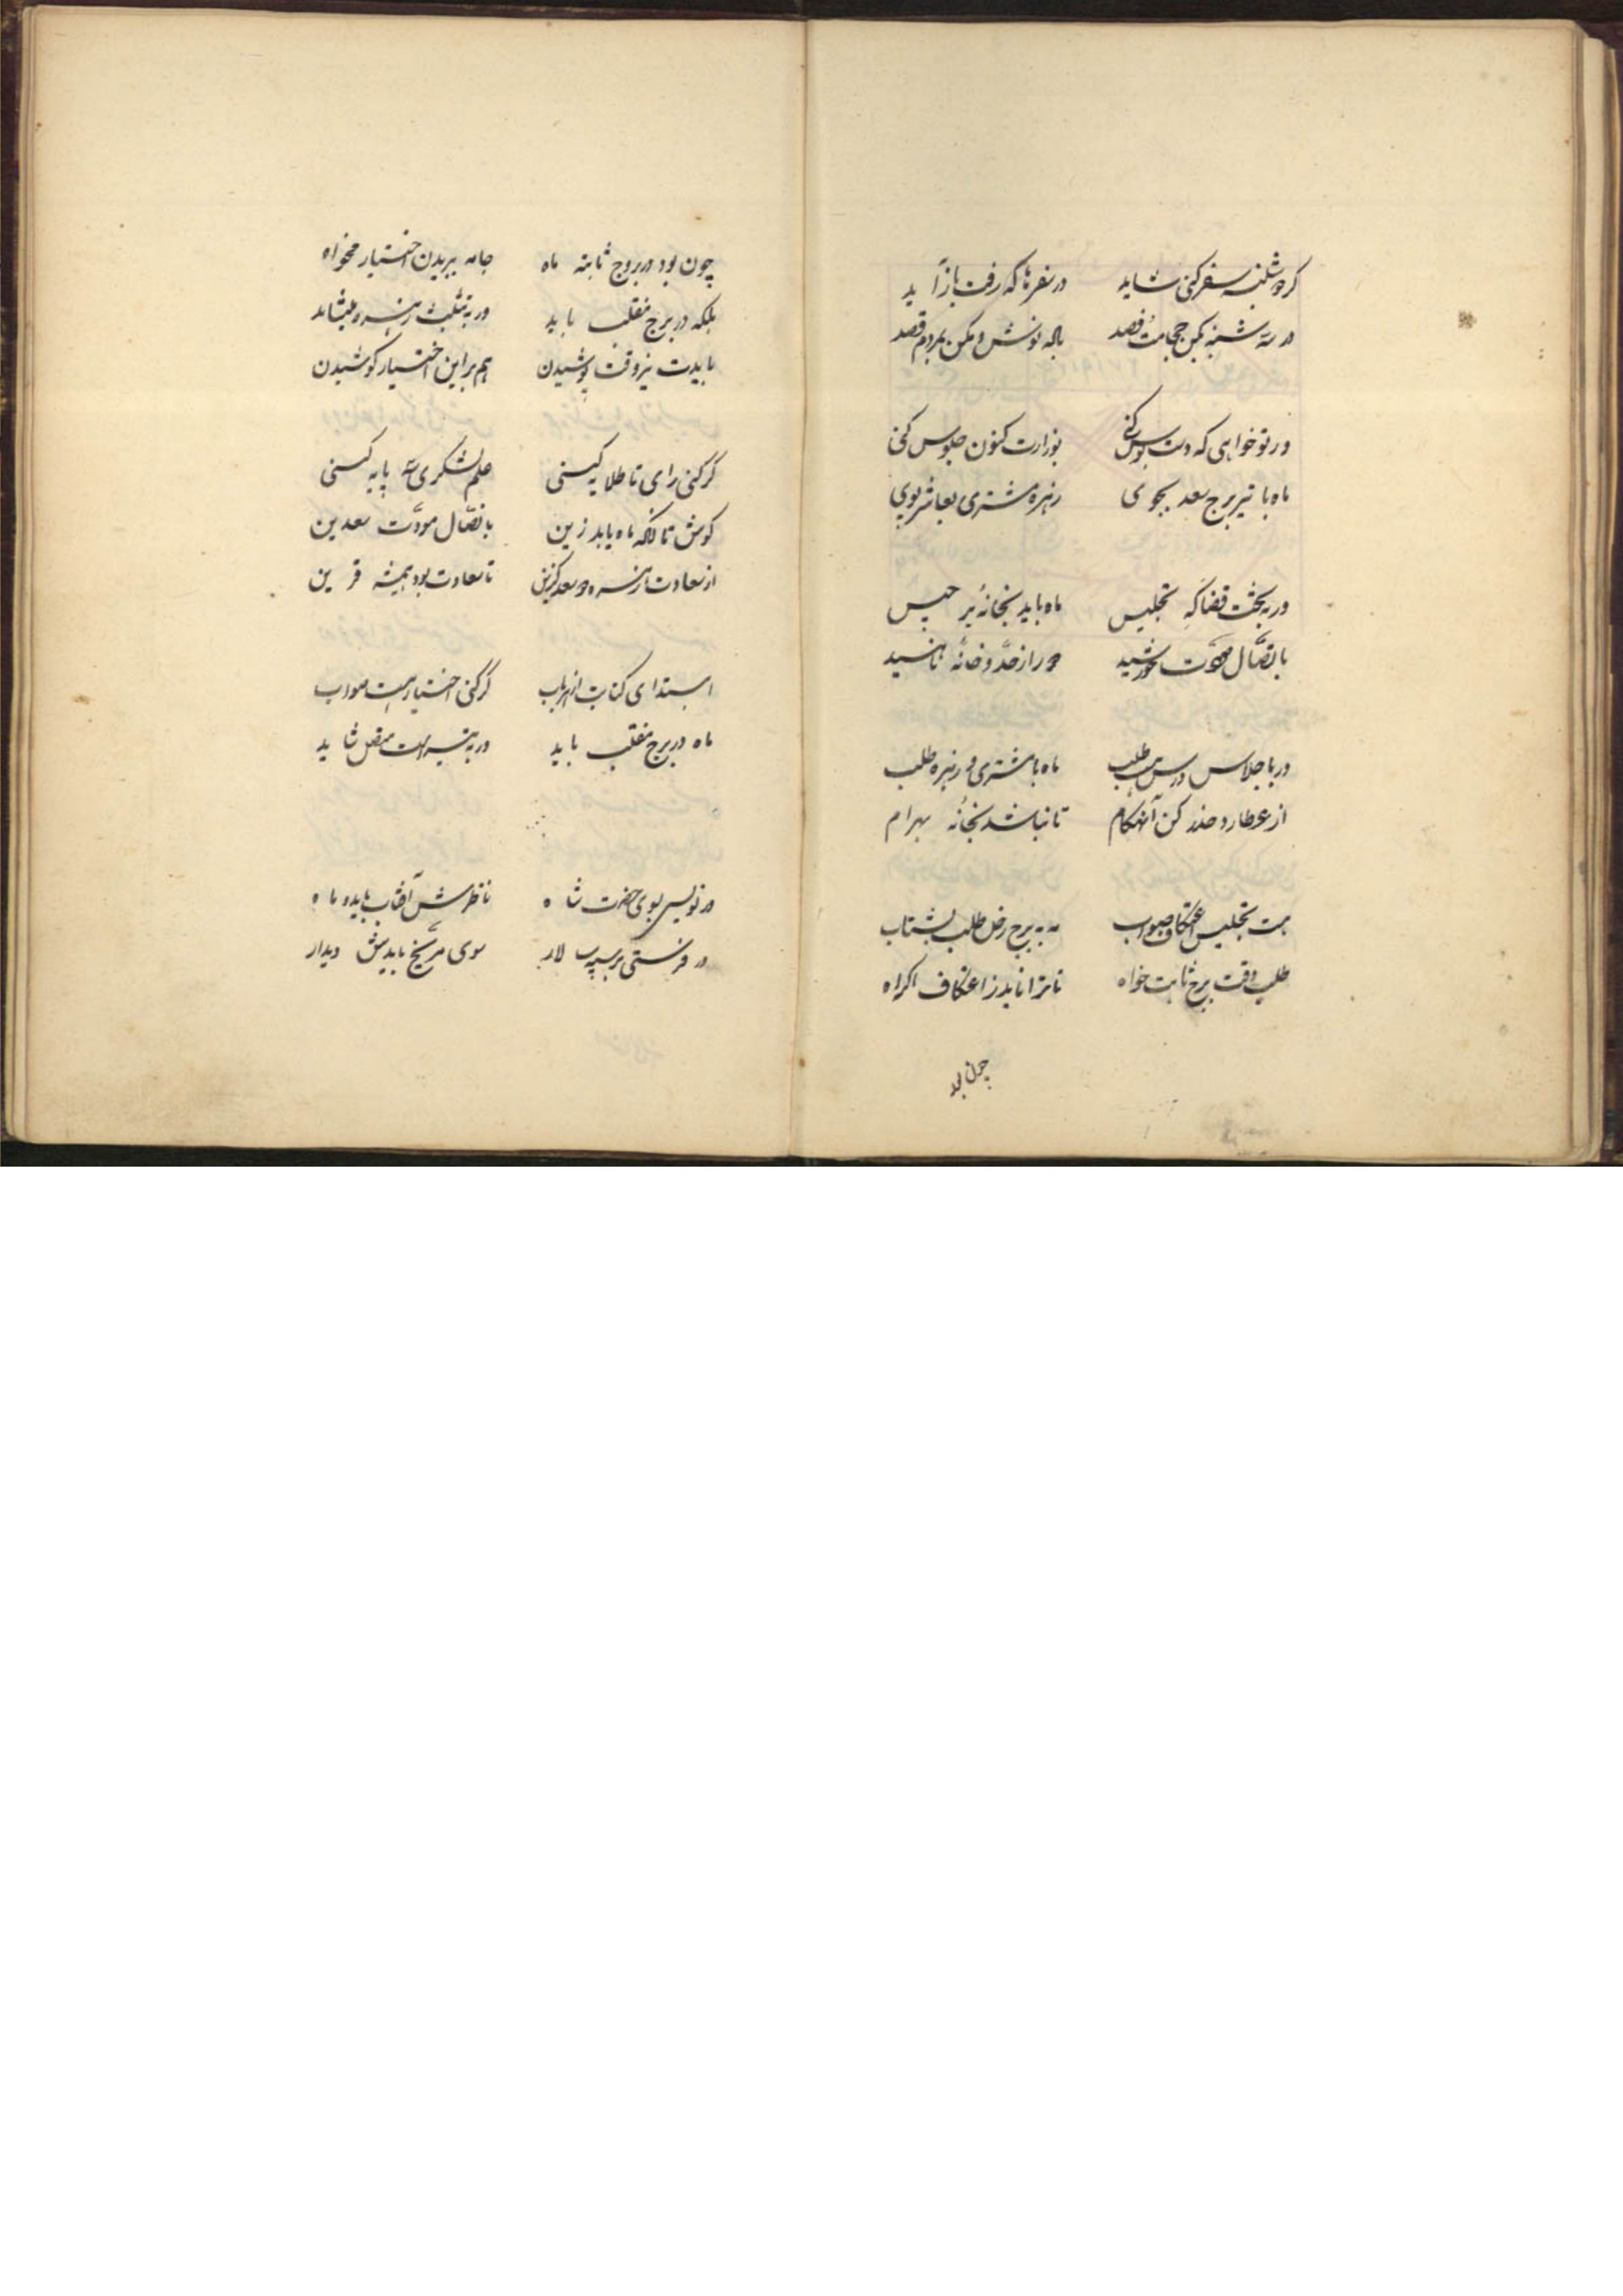 گر دوشنبه سفر کنی شاید در سفرها که رفت بازآید
در سه شنبه بکن حجامت فصد باله نوش و مکن بمردم قصد
ور تو خواهی که دست بوس کنی بوزارت کنون جلوس کنی
ماه با تیر برج سعد بجوی زهره مشتری بعاشر بوی
ور به بحث قضا که تجلیس ماه باید بخانهٔ برجیس
باتصال مودت خورشید دور از حد و خانهٔ ناهید
ور باجلاس درس هست طلب ماه با مشتری و زهره طلب
از عطارد حذر کن آنهنگام تا نباشد بخانهٔ بهرام
هست تجلیس اعتکاف صواب مه به برج زحل طلب بشتاب
طلب وقت برج ثابت خواه تا ترا ناید ز اعتکاف اکراه
چون بود
چون بود در بروج ثابته ماه جامه ببریدن اختیار مخواه
بلکه در برج منقلب باید ور به تثلیث زهره
بایدت نیز وقت پوشیدن هم براین اختیار کوشیدن
گر کنی رای تا طلایه کنی علم لشکری سه پایه کنی
کوش تا آنکه ماه یابد زین باتصال مودت سعدین
از سعادت زهره و سعد گزین تا سعادت بود همیشه قرین
ابتدای کتابت از هر باب گر کنی اختیار هست صواب
ماه در برج منقلب باید ور به تیرست متصل شاید
ور نویسی بسوی حضرت شاه ناظرش آفتاب باید و ماه
ور فرستی بر سپه سالار سوی مریخ بایدش دیدار